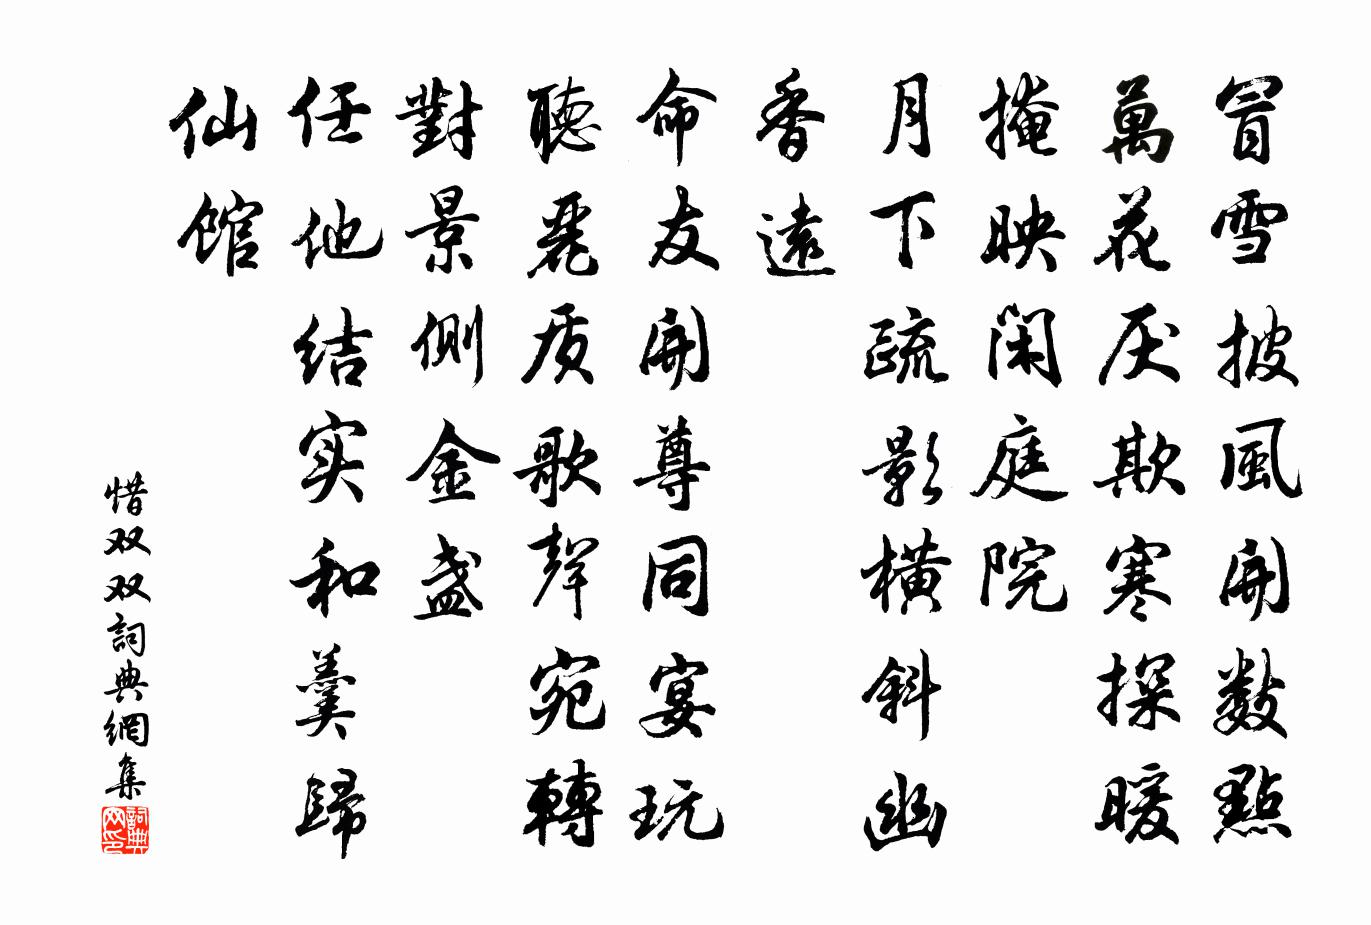 冒雪披風開數點
萬花厌欺寒探暖
掩映闲庭院
月下疏影橫斜幽
香遠
命友開尊同宴玩
聽麗质歌聲宛轉
對景側金盏
任他结实和羹歸
仙馆
惜双双詞典網集
詞典网印